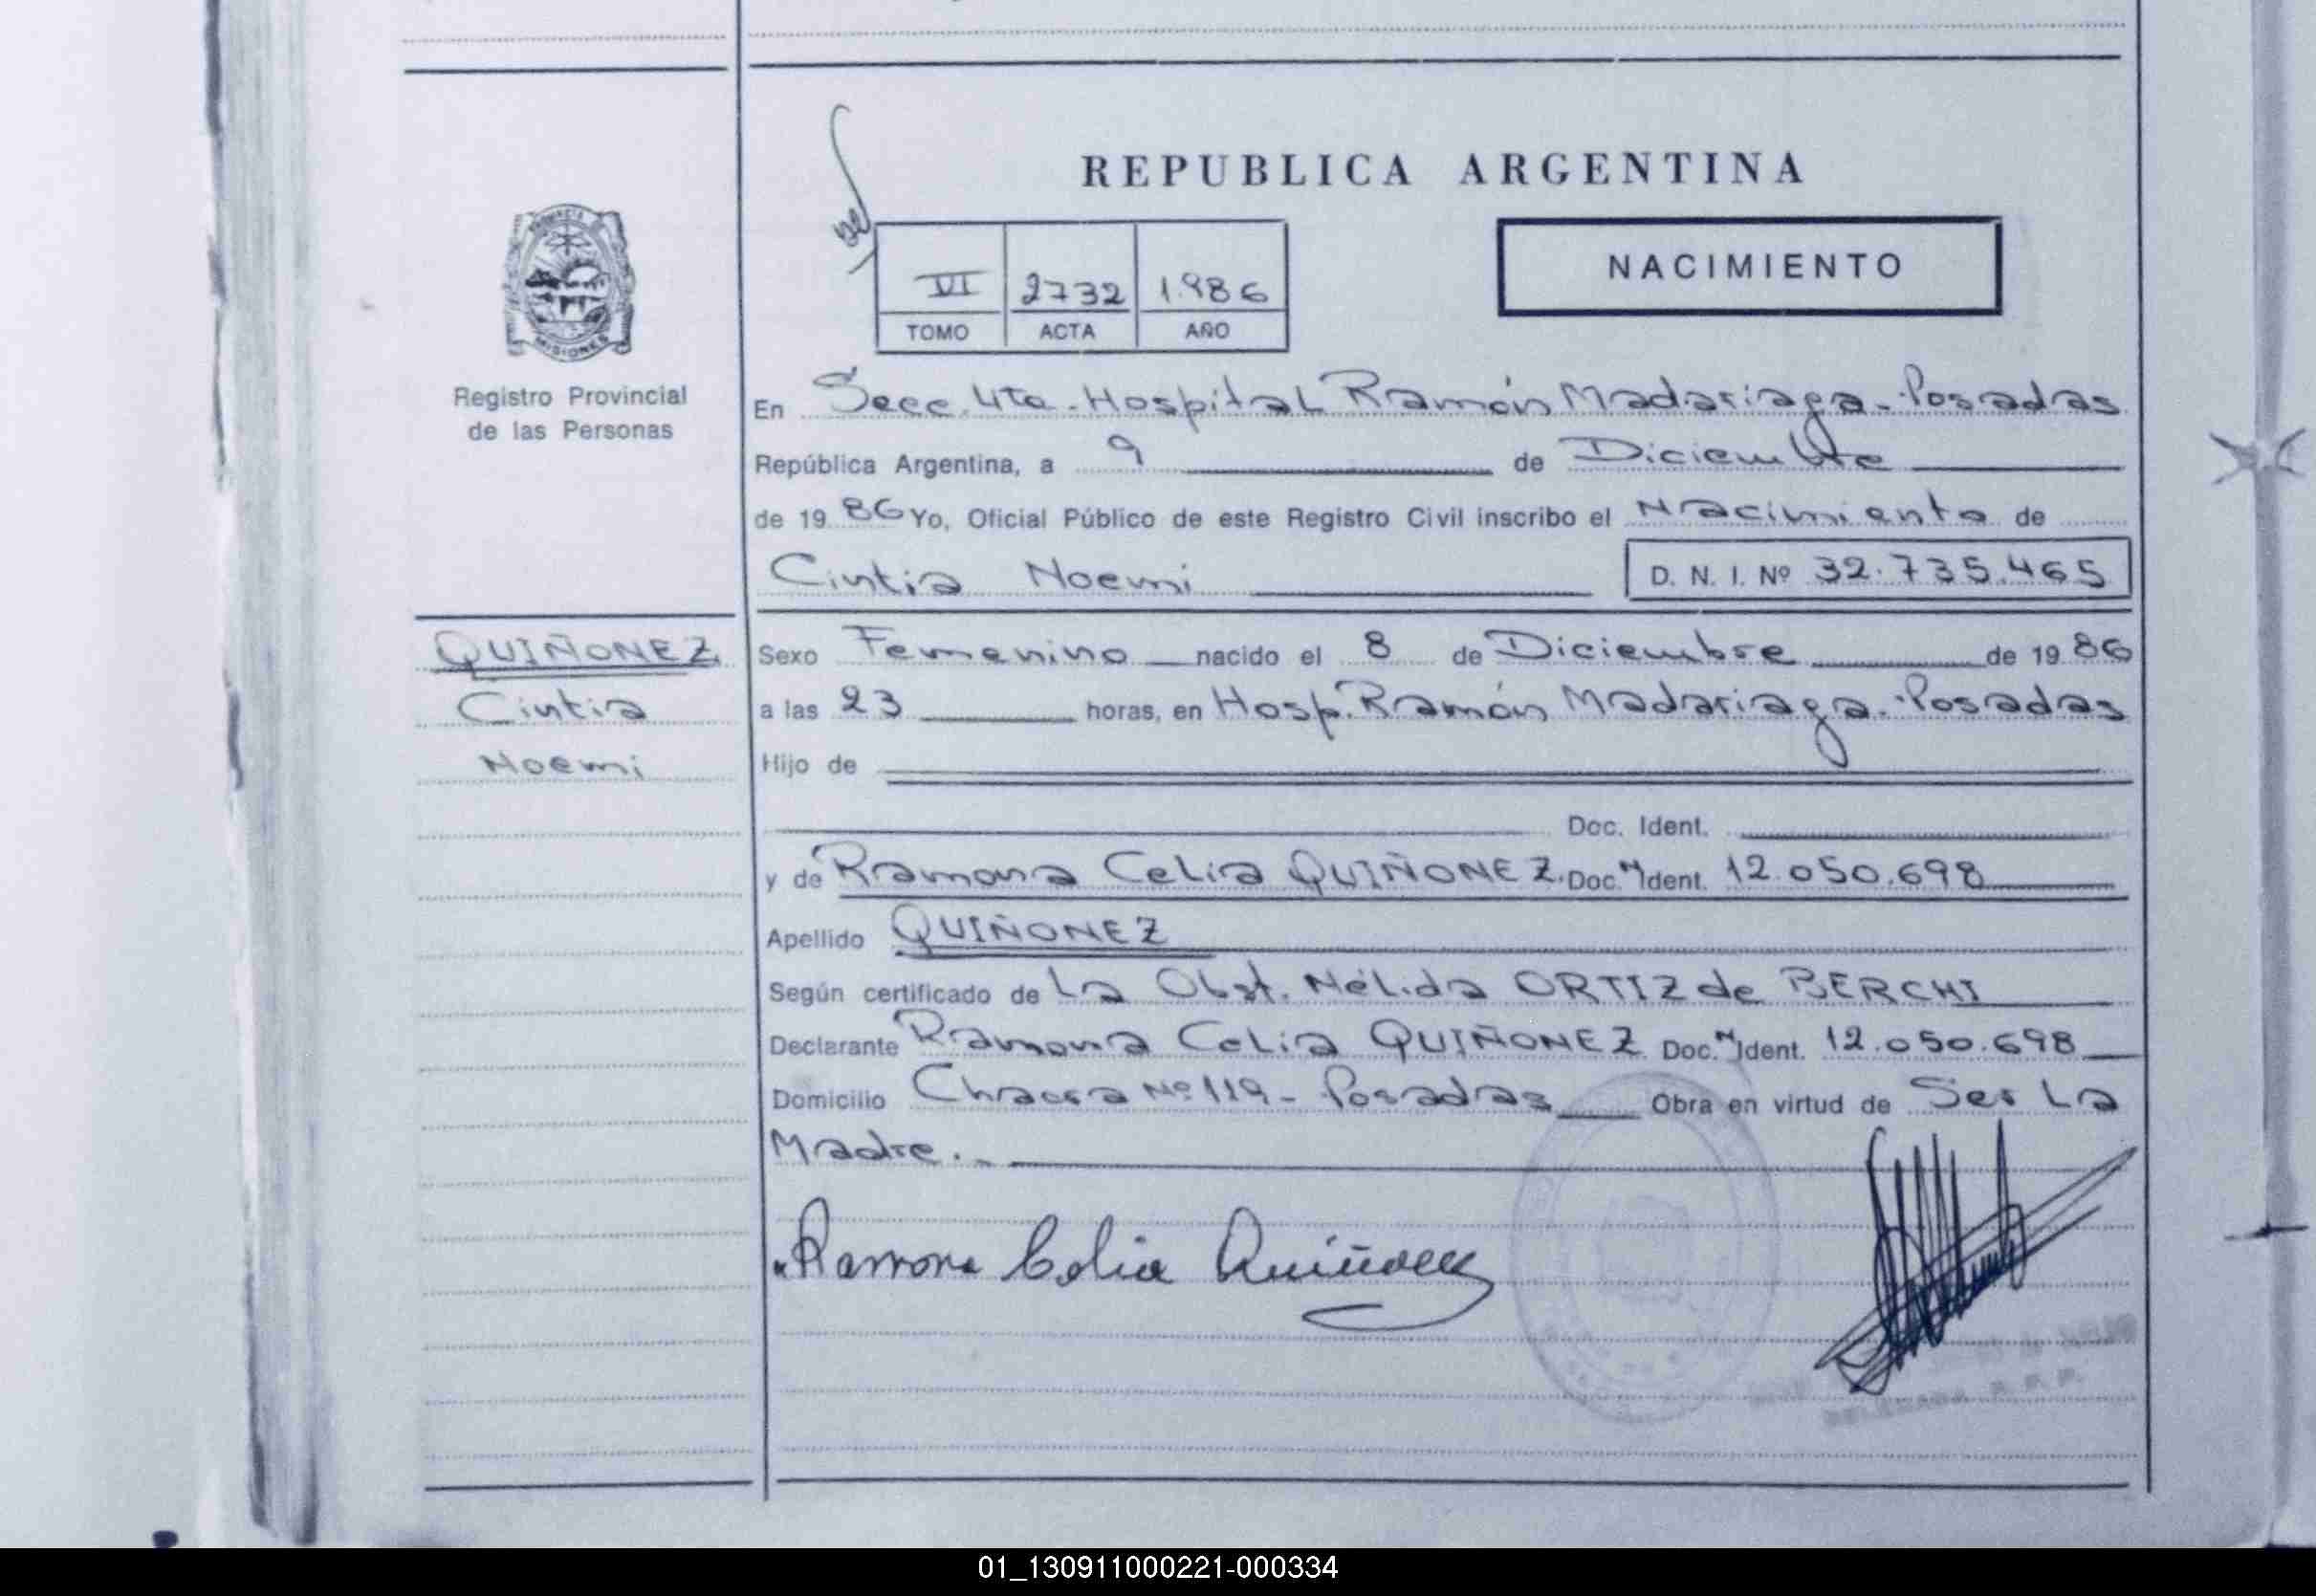 REPUBLICA ARGENTINA
PROVINCIA
MISIONES
VI 2732 1.986
TOMO ACTA AÑO
NACIMIENTO
Registro Provincial
de las Personas
En Secc. 4ta. Hospital Ramón Madariaga - Posadas
República Argentina, a 9 de Diciembre
de 1986 Yo, Oficial Público de este Registro Civil inscribo el Nacimiento de
Cintia Noemi D. N. I. Nº 32.735.465
QUIÑONEZ
Cintia
Noemi
Sexo Femenino nacido el 8 de Diciembre de 1986
a las 23 horas, en Hosp. Ramón Madariaga - Posadas
Hijo de
Doc. Ident.
y de Ramona Celia QUIÑONEZ. Doc. N Ident. 12.050.698
Apellido QUIÑONEZ
Según certificado de La Obst. Nélida ORTIZ de BERCHI
Declarante Ramona Celia QUIÑONEZ Doc. N Ident. 12.050.698
Domicilio Chacra Nº 119 - Posadas Obra en virtud de Ser La
Madre.-
Ramona Celia Quiñonez
DELEGADA R. P. P.
01_130911000221-000334